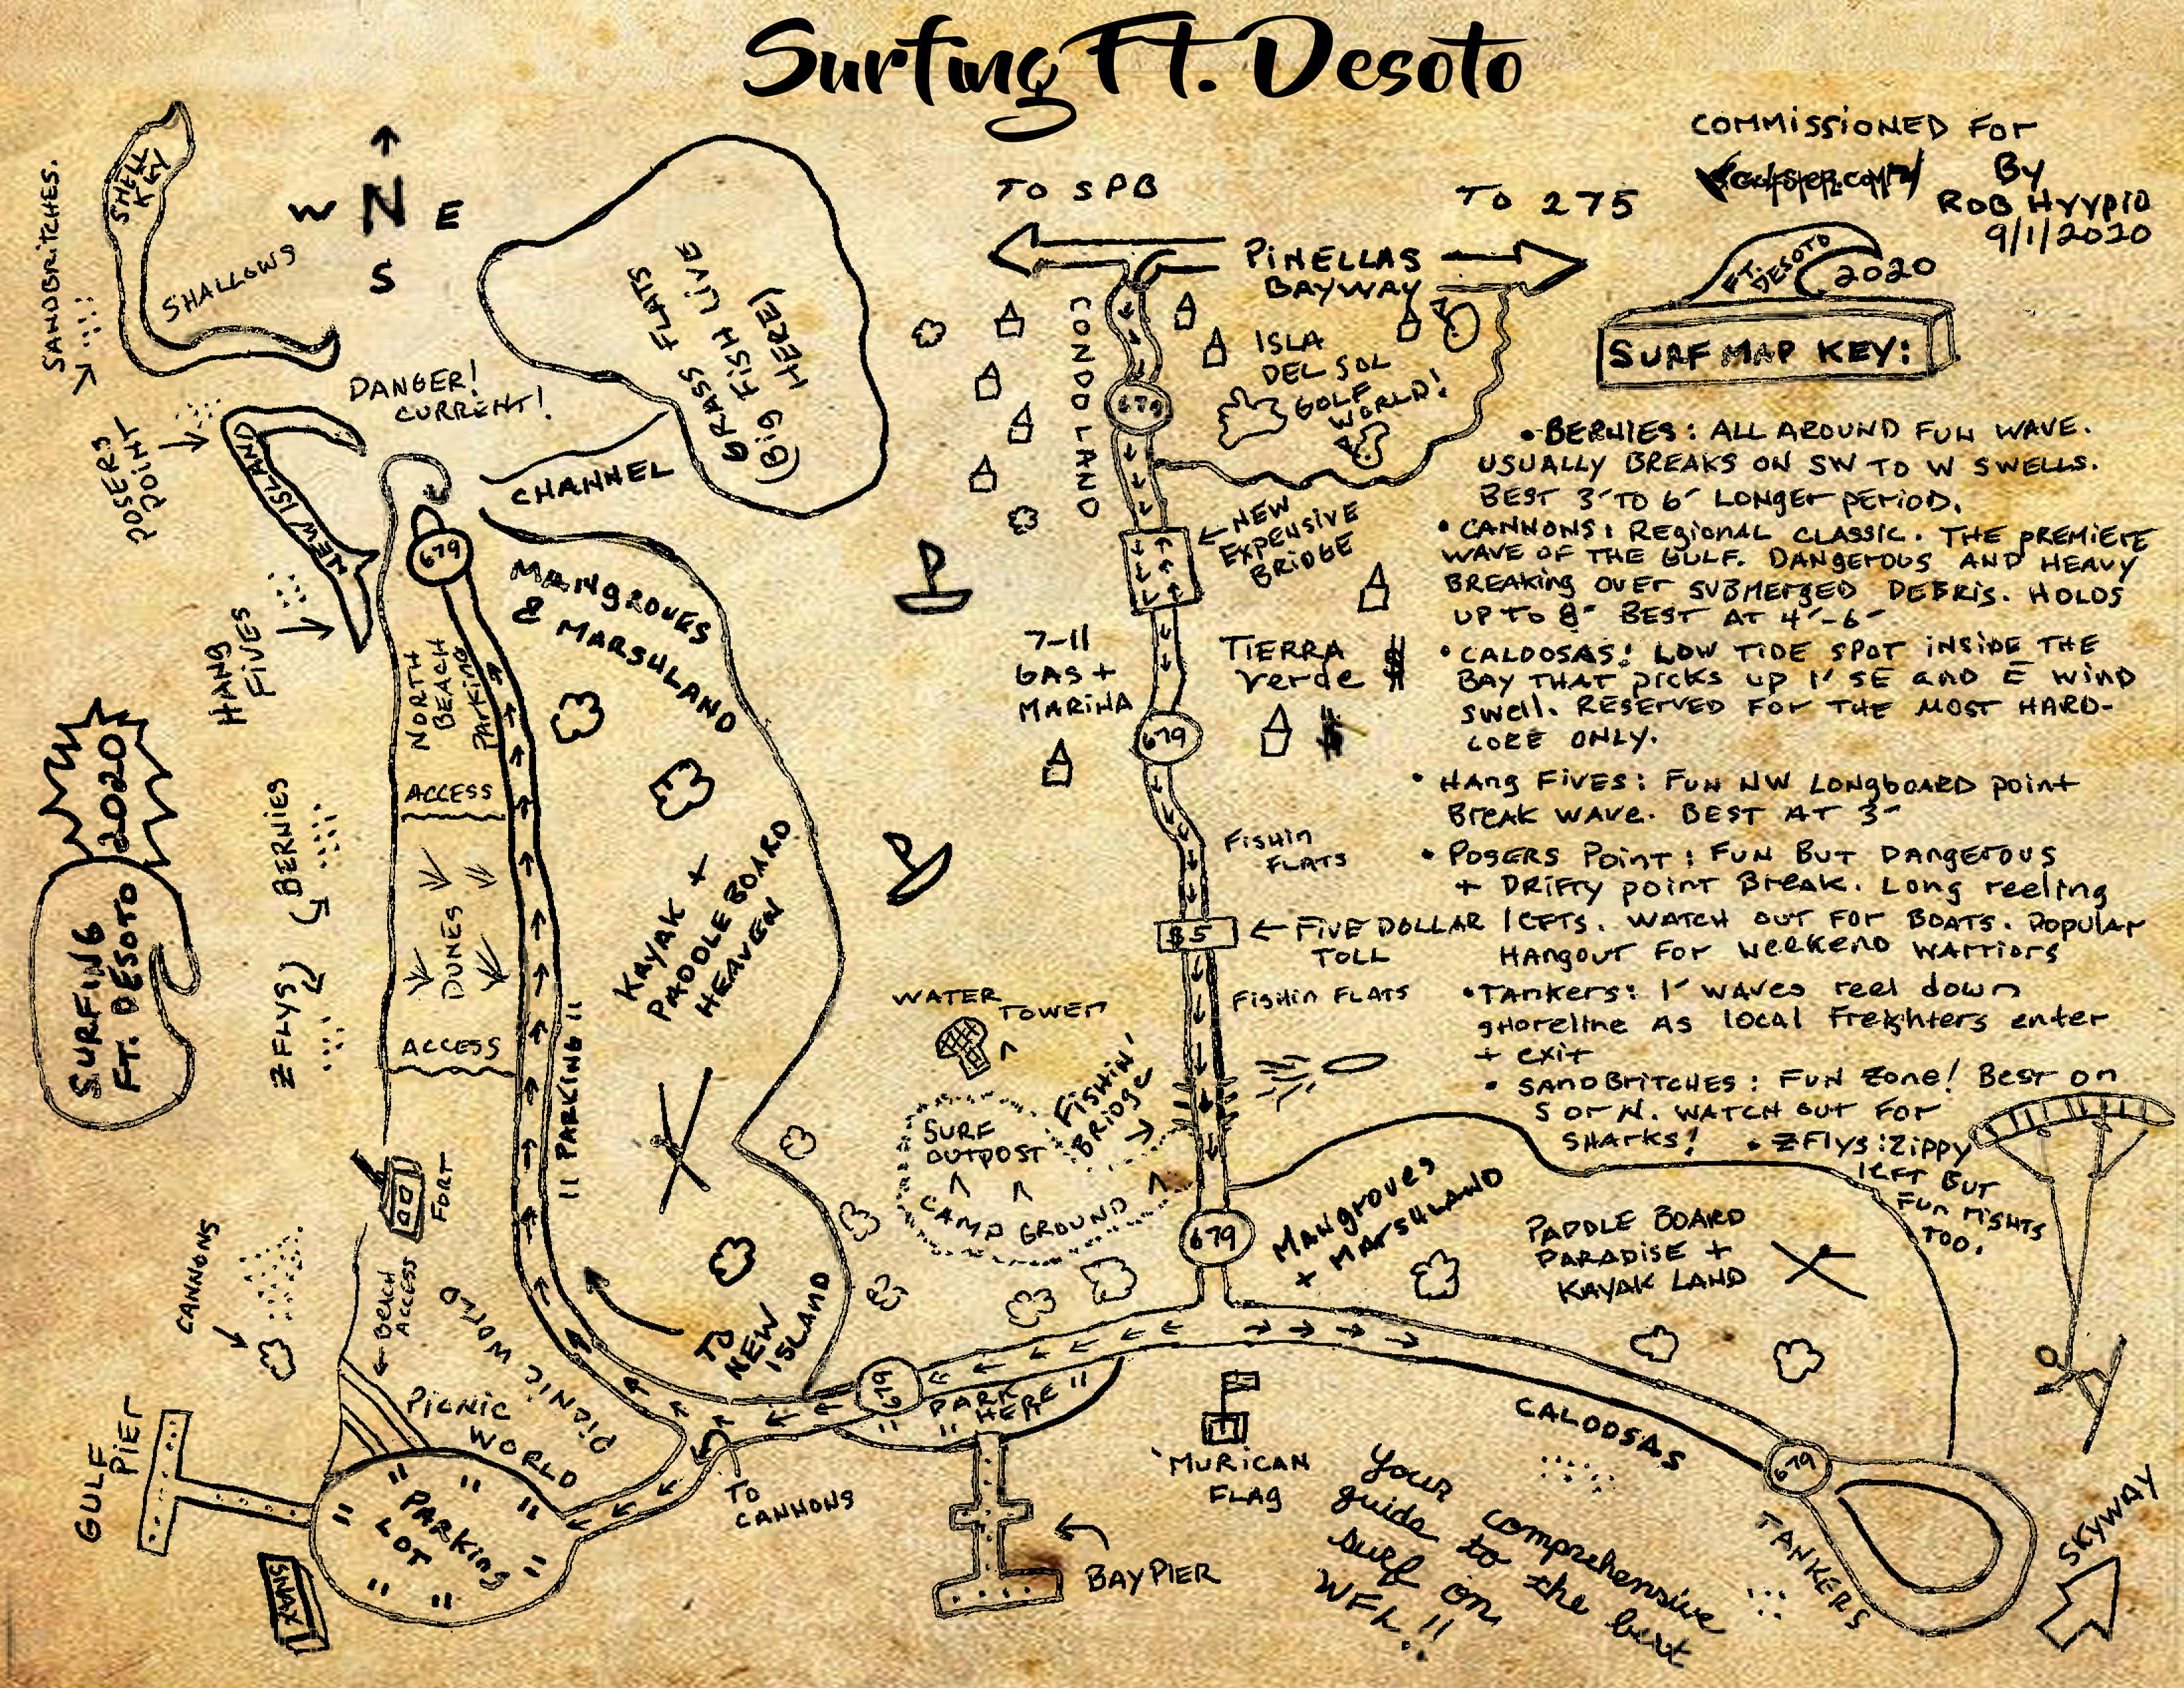 Surfing Ft. Desoto
COMMISSIONED FOR
By
ROB HYYPIO
9/1/2020
FT.
DESOTO
2020
SURF MAP KEY:
• BERNIES: ALL AROUND FUN WAVE.
USUALLY BREAKS ON SW TO W SWELLS.
BEST 3' TO 6' LONGER PERIOD.
• CANNONS: REGIONAL CLASSIC. THE PREMIERE
WAVE OF THE GULF. DANGEROUS AND HEAVY
BREAKING OVER SUBMERGED DEBRIS. HOLDS
UP TO 8' BEST AT 4'-6'
• CALOOSAS! LOW TIDE SPOT INSIDE THE
BAY THAT PICKS UP 1' SE and E WIND
SWELL. RESERVED FOR THE MOST HARD-
CORE ONLY.
• HANG FIVES: FUN NW LONGBOARD POINT
BREAK WAVE. BEST AT 3'
• POSERS POINT: FUN BUT DANGEROUS
+ DRIFTY POINT BREAK. LONG REELING
LEFTS. WATCH OUT FOR BOATS. POPULAR
HANGOUT FOR WEEKEND WARRIORS
• TANKERS: 1' WAVES REEL DOWN
SHORELINE AS LOCAL FREIGHTERS ENTER
+ EXIT
• SANDBRITCHES: FUN ZONE! BEST ON
S OR N. WATCH OUT FOR
SHARKS!
• ZFLYS: ZIPPY
LEFT BUT
FUN RIGHTS
TOO.
SANDBRITCHES.
SHELL
KEY
SHALLOWS
N
W
E
S
DANGER!
CURRENT!
GRASS FLATS
(BIG FISH LIVE
HERE)
CHANNEL
POSERS
POINT
NEW ISLAND
679
MANGROVES
& MARSHLAND
HANG
FIVES
NORTH
BEACH
PARKING
ACCESS
BERNIES
DUNES
ZFLYS
ACCESS
SURFING
FT. DESOTO
2020
KAYAK +
PADDLE BOARD
HEAVEN
" PARKING "
FORT
CANNONS
BEACH
ACCESS
PICNIC WORLD
PICNIC
WORLD
TO
NEW
ISLAND
GULF
PIER
PARKING
LOT
SNAX
TO
CANNONS
TO SPB
TO 275
PINELLAS
BAYWAY
CONDO LAND
ISLA
DEL SOL
GOLF
WORLD!
679
NEW
EXPENSIVE
BRIDGE
7-11
GAS +
MARINA
TIERRA
VERDE $
$
679
FISHIN
FLATS
$5
FIVE DOLLAR
TOLL
FISHIN FLATS
WATER
TOWER
FISHIN'
BRIDGE
SURF
OUTPOST
CAMP GROUND
679
MANGROVES
+ MARSHLAND
PADDLE BOARD
PARADISE +
KAYAK LAND
679
PARK
HERE
BAY PIER
'MURICAN
FLAG
CALOOSAS
679
TANKERS
SKYWAY
Your comprehensive
guide to the best
surf on
WFL!!